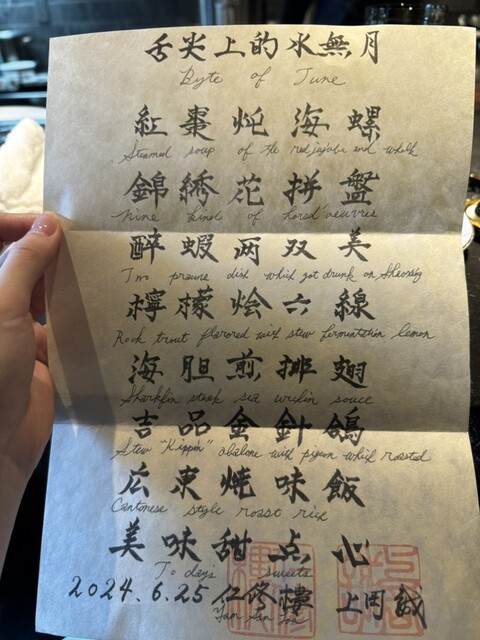 舌尖上的水無月
Byte of June
紅棗炖海螺
Steamed soup of the red jujube and whelk
錦綉花拼盤
Nine kind of hored oeuvres
醉蝦两双美
Two prawns dish which got drunk on Shaoxing
檸檬烩六線
Rock trout flavored with stew fermentation lemon
海胆煎排翅
Sharkfin steak sea urchin souce
吉品金針鴿
Stew "Kippin" abalone with pigeon which roasted
広東焼味飯
Cantonese style roast rich
美味甜点心
Today's sweets
2024.6.25 仁修樓 上岡誠